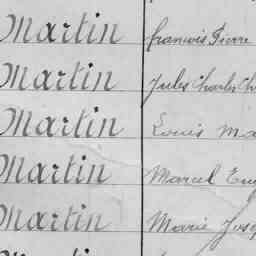 Martin François Pierre
Martin Jules Charles
Martin Louis
Martin Marcel
Martin Marie